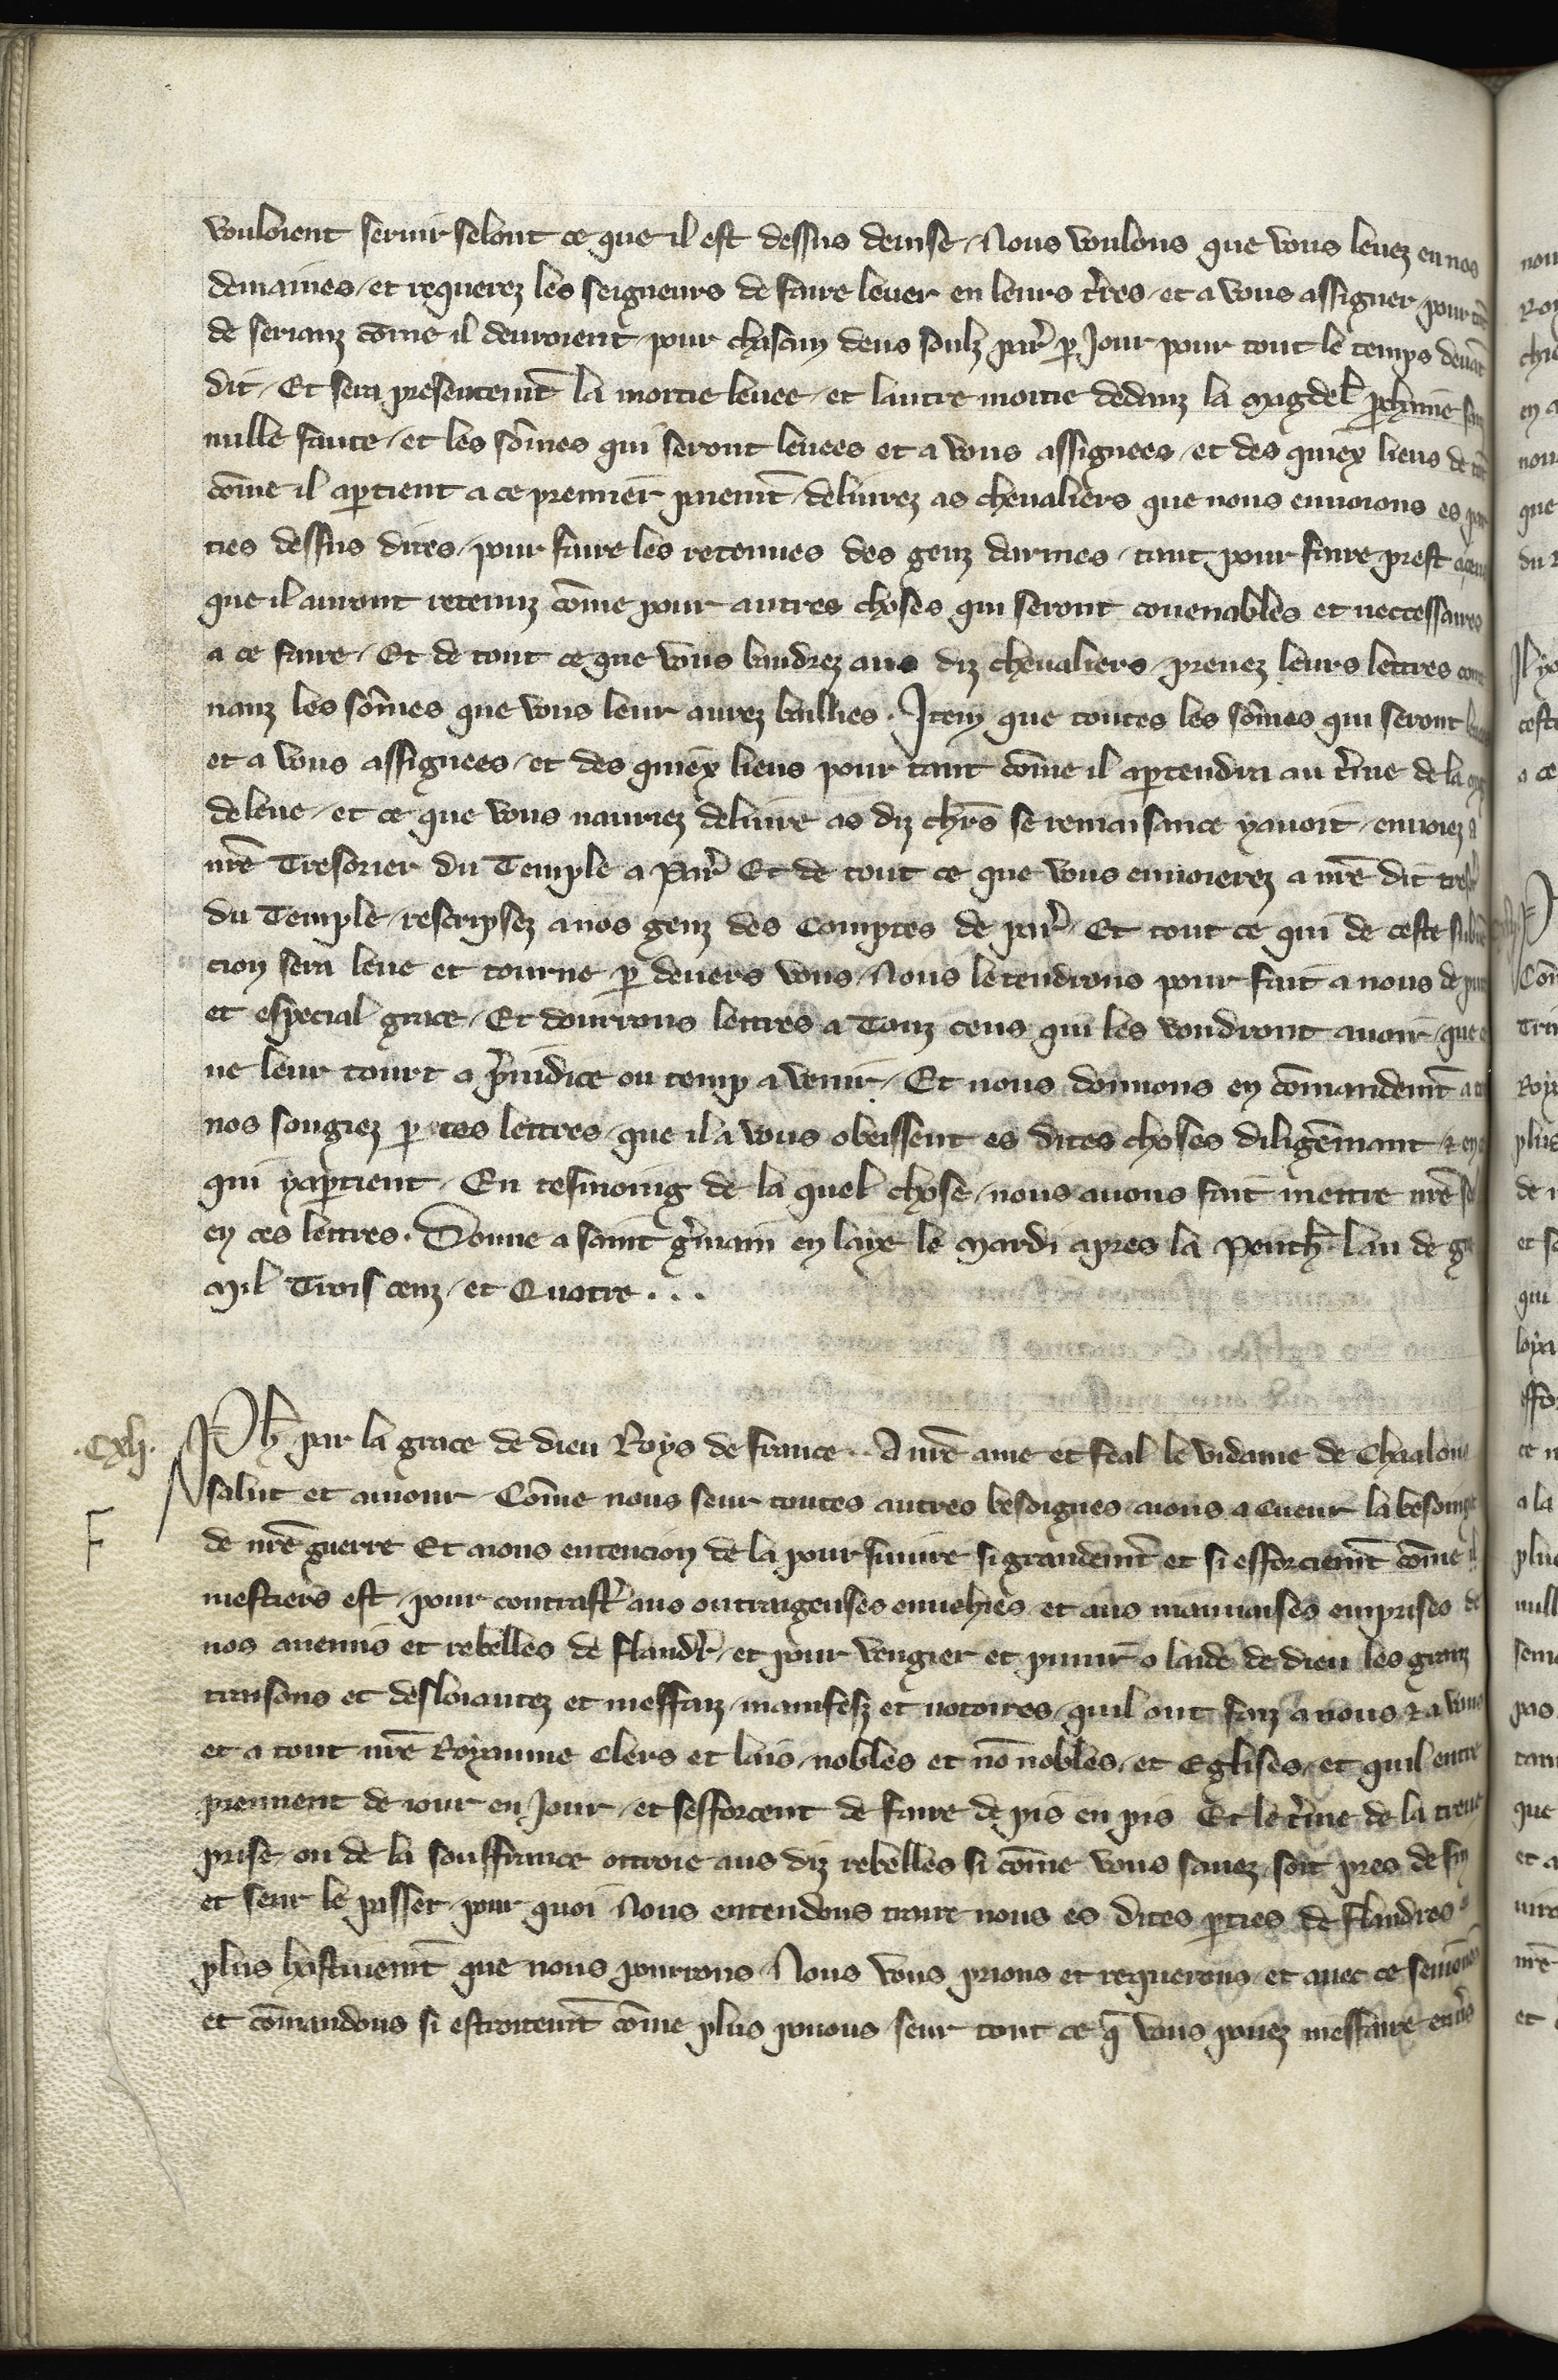 vouloient seruir selont ce que il est dessus deuise / Nous voulons que vous leuez en nos
demaines / et requerez les seigneurs de faire leuer en leurs t̃res / et a vous assigner pour
de serianz cõme il deuroient pour chascun deus soulz par̃ ꝑ Jour pour tout le temps deuãt
dit / Et sera presentemt̃ la moitie leuee / et lautre moitie dedanz la Magdel̃ ꝓchaine
nulle faute / et les sõmes qui seront leuees et a vous assignees / et des quiex lieus de
cõme il aꝑtient a ce premier paiemt̃ / deliurez as cheualiers que nous enuoions es
ties dessus dites / pour faire les retenues des genz darmes / tant pour faire prest
que il auront retenuz cõme pour autres choses qui seront couenables et neccessaires
a ce faire / Et de tout ce que vous baudrez aus diz cheualiers / prenez leurs lettres
nanz les sõmes que vous leur aurez baillies . Item que toutes les sõmes qui seront
et a vous assignees / et des quiex lieus pour tant cõme il aꝑtendra au t̃me de la
deleue / et ce que vous nauriez deliure as diz chr̃s se remaisance yauoit / enuoiez a
nr̃e Tresorier du Temple a Par̃ Et de tout ce que vous enuoierez a nr̃e dit
du Temple / rescripsez a nos genz des Comptes de par̃ / Et tout ce qui de ceste
cion sera leue et tourne ꝑ deuers vous / Nous le tendrons pour fait a nous de
et especial grace / Et dourrons lettres a Touz ceus qui les voudront auoir / que
ne leur tourt a p̃iudice ou temp a venir / Et nous donnons en cõmandemt̃
nos sougiez ꝑ ces lettres / que il a vous obeissent es dites choses diligẽmant
qui yaꝑtient / En tesmoing de la quel chose / nous auons fait mettre nr̃e
en ces lettres . Donne a saint g̃main en laye le Mardi apres la Penth̃ lan de
Mil Trois cenz / et Quatre . . .
.Cxlj.
Ph̃ par la grace de dieu Roys de france . . A nr̃e ame et feal le vidame de Chaalons
F
salut et amour / Cõme nous seur toutes autres besoignes aions a cueur la besoing
de nr̃e guerre Et aions entencion de la pour suiure si grandemt̃ et si efforciemt̃ cõme il
mestiers est / pour contrast̃ aus outraigeuses enuehies et aus mauuaises emprises de
nos anemis et rebelles de fland̃r / et pour vengier et punir o laide de dieu les granz
traisons et desloiautez et meffaiz / manifesz et notoires / quil ont faiz a nous ⁊ a vous
et a tout nr̃e Royaume Clers et lais / nobles et nõ nobles / et Eglises / et quil entre
prennent de iour en Jour / et sefforcent de faire de pis en pis Et le t̃me de la treue
prise / ou de la souffrance ottroie aus diz rebelles si cõme vous sauez / soit pres de fin
et seur le passer / pour quoi Nous entendons traire nous es dites ꝑties de flandres
plus hastiuemt̃ que nous pourrons / Nous vous prions et requerons / et auec ce
et cõmandons si estroitemt̃ cõme plus pouons seur tout ce q̃ vous pouez meffaire